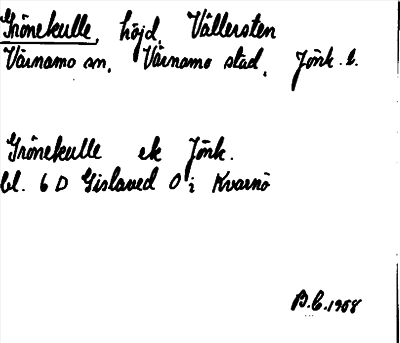 Grönekulle, höjd, Vällersten
Värnamo sn, Värnamo stad, Jönk. l.
Grönekulle ek Jönk.
bl. 6 D Gislaved O; Kvarnö
B.C. 1958